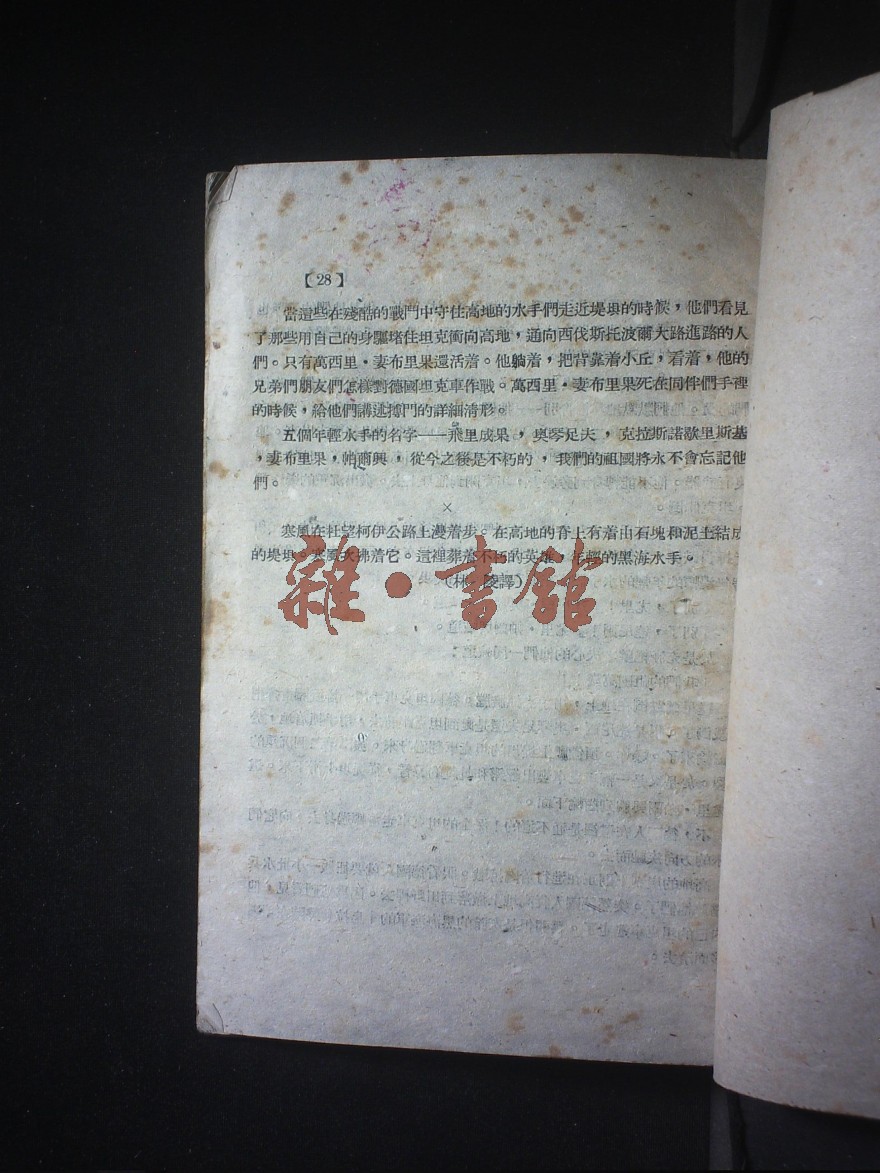 【28】
當這些在殘酷的戰鬥中守住高地的水手們走近堤垻的時候，他們看見
了那些用自己的身軀堵住坦克衝向高地，通向西伐斯托波爾大路進路的人
們。只有萬西里·妻布里果還活着。他躺着，把背靠着小丘，看着，他的
兄弟們朋友們怎樣對德國坦克車作戰。萬西里·妻布里果死在同伴們手裡
的時候，給他們講述搏鬥的詳細情形。
五個年輕水手的名字——飛里成果，奧琴足夫，克拉斯諾歇里斯基
，妻布里果，帕爾興，從今之後是不朽的，我們的祖國將永不會忘記他
們。
×
寒風在杜望柯伊公路上漫着步。在高地的脊上有着山石塊和泥土結成
的堤垻。寒風吹拂着它。這裡葬着不朽的英雄，年輕的黑海水手。
（林 陵譯）
雜·書館